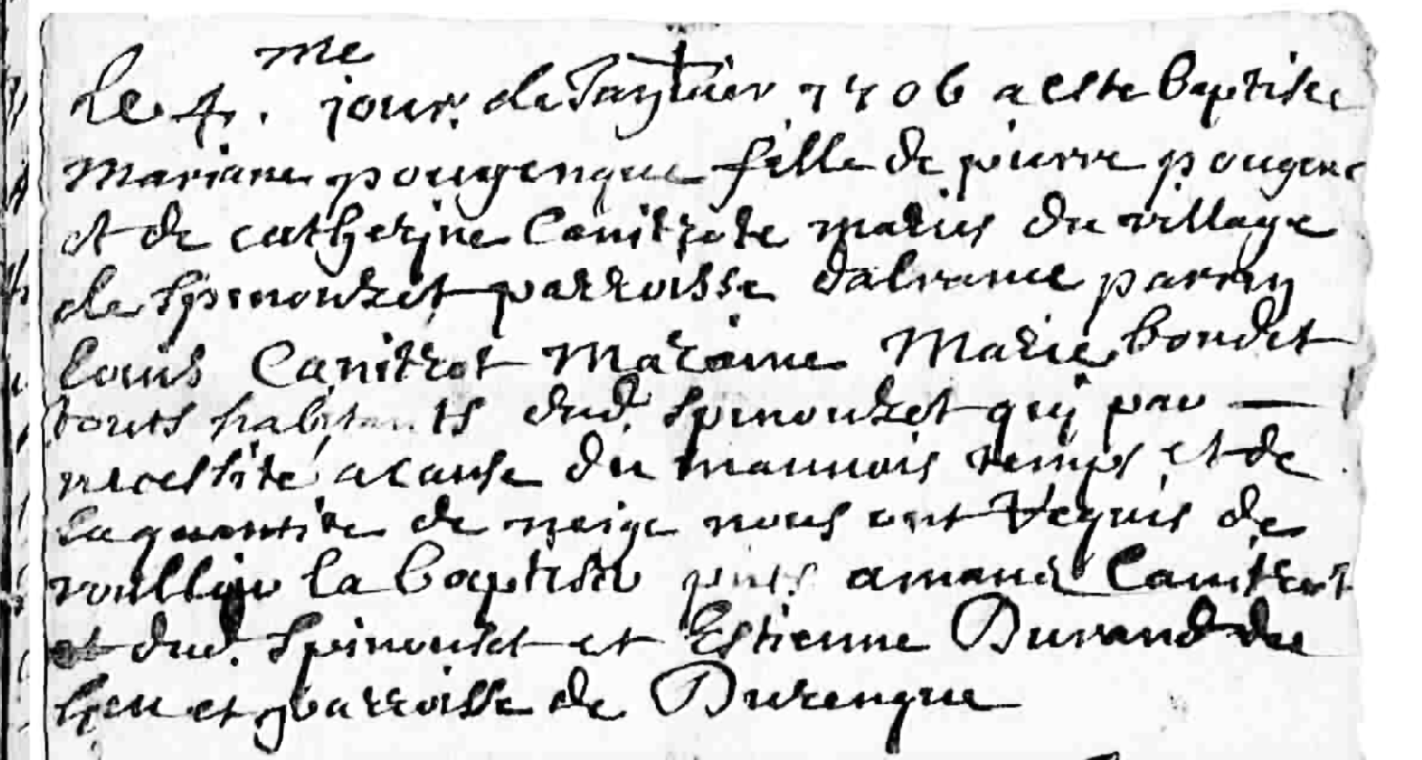 Le 4.me jour de Janvier 1706 a este baptisee
Mariane pougenque fille de pierre pougenc
et de catherine Canitrote maries du village
de Spinouzet parroisse dalrance parrin
louis Canitrot Maraine Marie boudet
touts habitants dud. Spinouzet quy par —
necessite a cause du mauvois temps et de
la quantite de neige nous ont requis de
voulloir la baptiser pnts amans Canitrot
et dud. Spinouset et Estienne Durand du
lieu et parroisse de Durengue